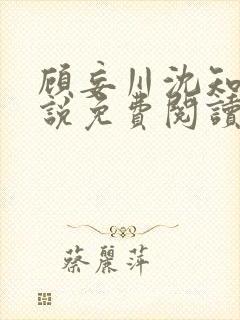 顾妄川沈知
說免費閱讀
蔡麗萍